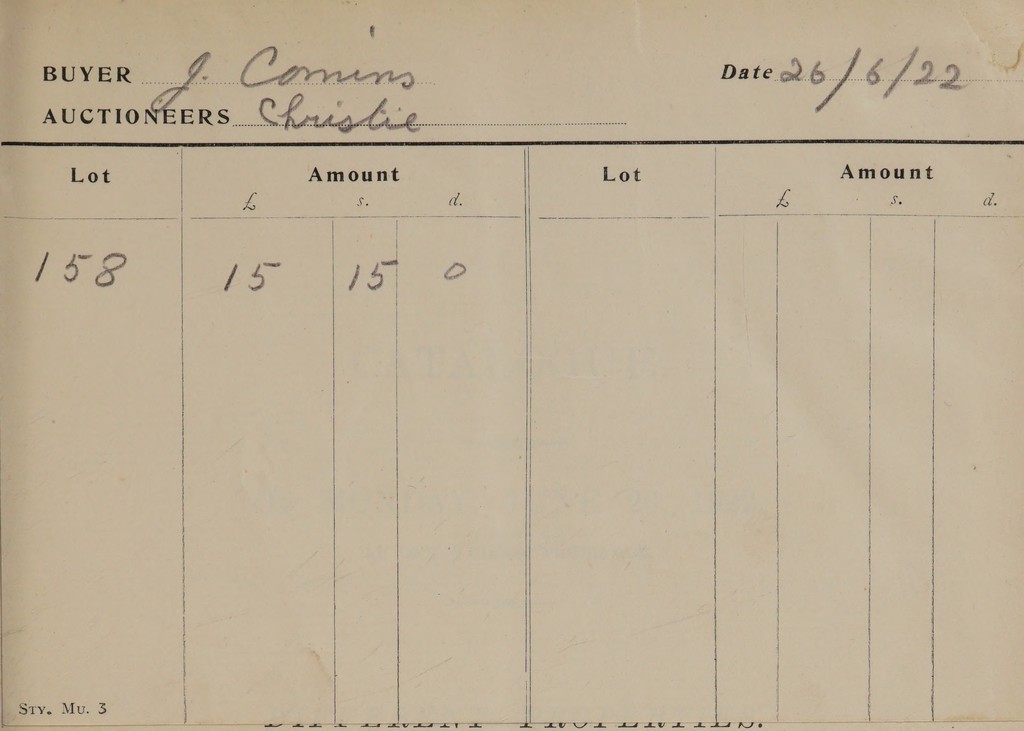 BUYER J. Comins Date 26/6/22
AUCTIONEERS Christie
Lot Amount Lot Amount
£ s. d. £ s. d.
158 15 15 0
STY. MU. 3
DIFFERENT PROPERTIES.